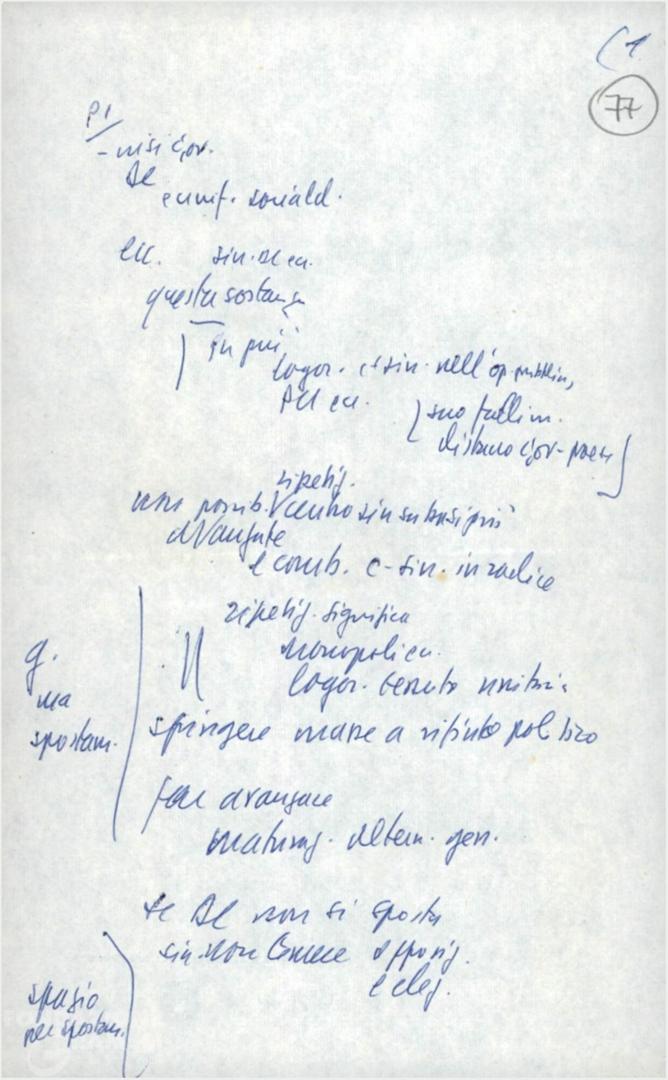 (1
77
P1
- crisi gov.
DC
e unif. sociald.
ecc. sin. DC ecc.
questa sostanza
in più
logor. c-sin. nell'op. pubblica,
PCI ecc.
suo fallim.
distacco gov-paese
ripetiz.
non possib. centro sin su basi più
avanzate
e comb. c-sin. in radice
ripetiz. significa
monopoli ecc.
logor. tenuto unitari
g.
ma
spostam.
spingere masse a rifiuto politico
far avanzare
maturaz. altern. gen.
se DC non si sposta
sin. non temere opposiz.
e elez.
spazio
per spostam.